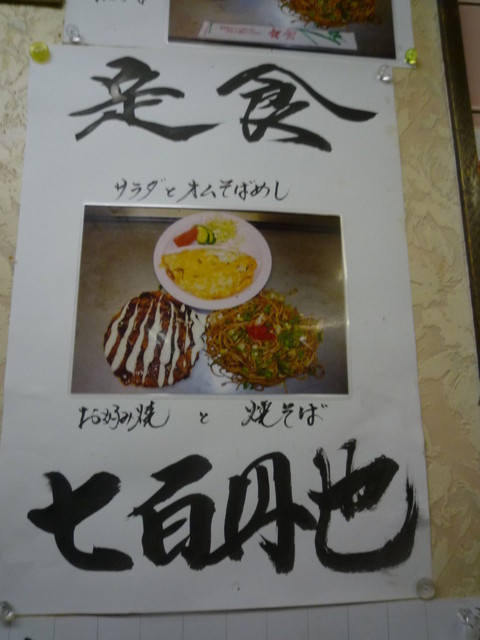 定食
サラダとオムそばめし
お好み焼 と 焼そば
七百円也